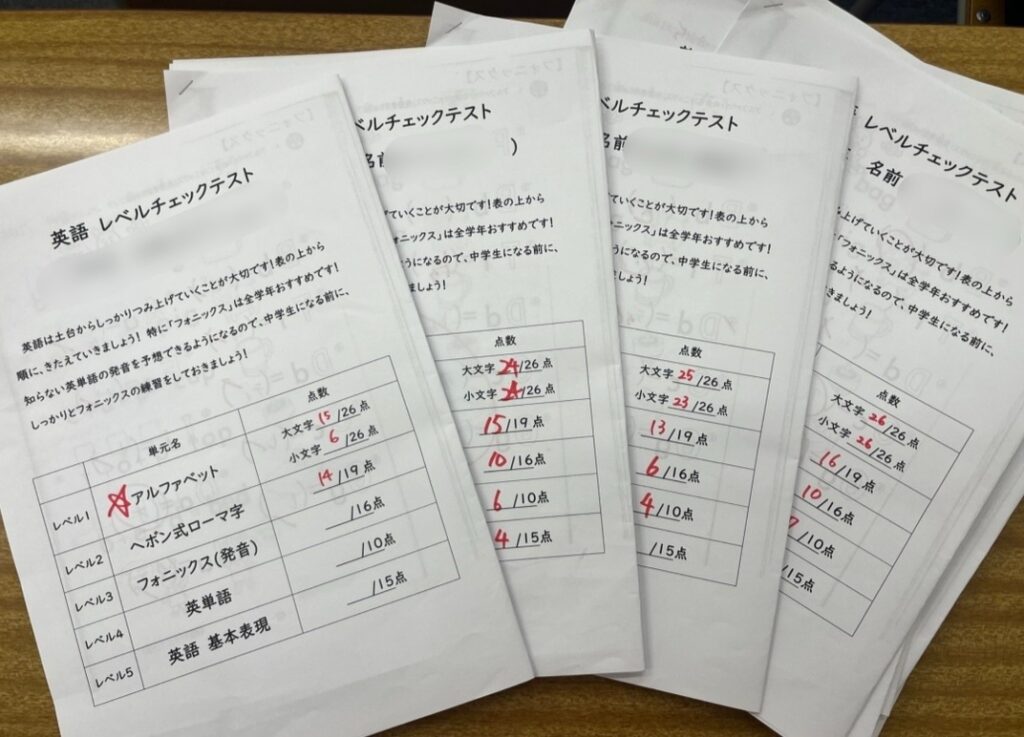 英語 レベルチェックテスト
英語は土台からしっかりつみ上げていくことが大切です!表の上から
順に、きたえていきましょう! 特に「フォニックス」は全学年おすすめです!
知らない英単語の発音を予想できるようになるので、中学生になる前に、
しっかりとフォニックスの練習をしておきましょう!
単元名 点数
レベル1 アルファベット 大文字 15/26点
小文字 6/26点
レベル2 ヘボン式ローマ字 14/19点
レベル3 フォニックス(発音) /16点
レベル4 英単語 /10点
レベル5 英語 基本表現 /15点
ベルチェックテスト
名前 )
ていくことが大切です!表の上から
フォニックス」は全学年おすすめです!
うになるので、中学生になる前に、
ましょう!
点数
大文字 24/26点
小文字 /26点
15/19点
10/16点
6/10点
4/15点
ベルチェックテスト
名前
ていくことが大切です!表の上から
フォニックス」は全学年おすすめです!
ようになるので、中学生になる前に、
ましょう!
点数
大文字 25/26点
小文字 23/26点
13/19点
6/16点
4/10点
/15点
レベルチェックテスト
名前
み上げていくことが大切です!表の上から
「フォニックス」は全学年おすすめです!
るようになるので、中学生になる前に、
きましょう!
点数
大文字 26/26点
小文字 26/26点
16/19点
10/16点
/10点
/15点